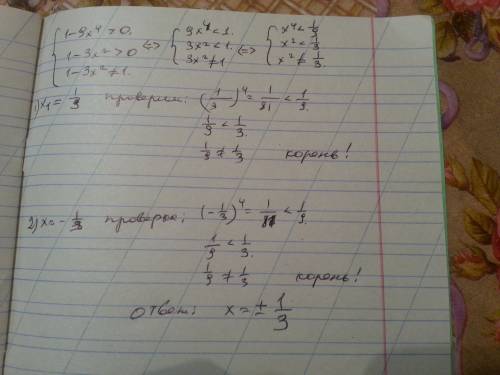 { 1-9x⁴>0. { 9x⁴<1. { x⁴<1/9
1-3x²>0 <=> 3x²<1. <=> x²<1/3
1-3x²≠1. 3x²≠1 x²≠1/3.
1) x₁=1/3 проверим: (1/3)⁴=1/81<1/9.
1/9<1/3.
1/9≠1/3 корень!
2) x=-1/3 проверка; (-1/3)⁴=1/81<1/9.
1/9<1/3.
1/9≠1/3 корень!
ответ: x=±1/3